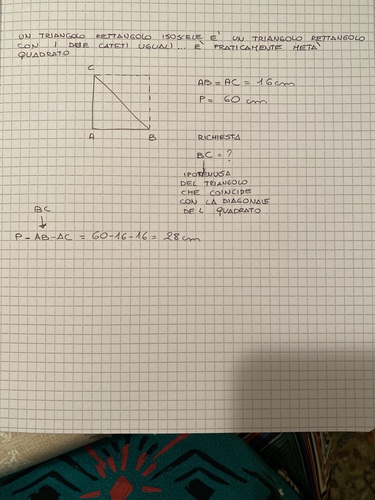 UN TRIANGOLO RETTANGOLO ISOSCELE E' UN TRIANGOLO RETTANGOLO
CON I DUE CATETI UGUALI... E' PRATICAMENTE META'
QUADRATO
C
A
B
AB = AC = 16 cm
P = 60 cm
RICHIESTA
BC = ?
IPOTENUSA
DEL TRIANGOLO
CHE COINCIDE
CON LA DIAGONALE
DEL QUADRATO
BC
P - AB - AC = 60 - 16 - 16 = 28 cm